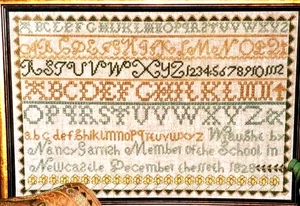 ABCDEFGHIKLMNOPQRSTUVWXYZ
ABCDEFGHIKLMNOPQ
RSTUVWXYZ 1 2 3 4 5 6 7 8 9 10 11 12
ABCDEFGHIKLMN
OPQRSTUVWXYZ
abcdefghiklmnopqrtuvwxyz Wrought by
Nancy Parrish Member of the School in
Newcastle December the 1828